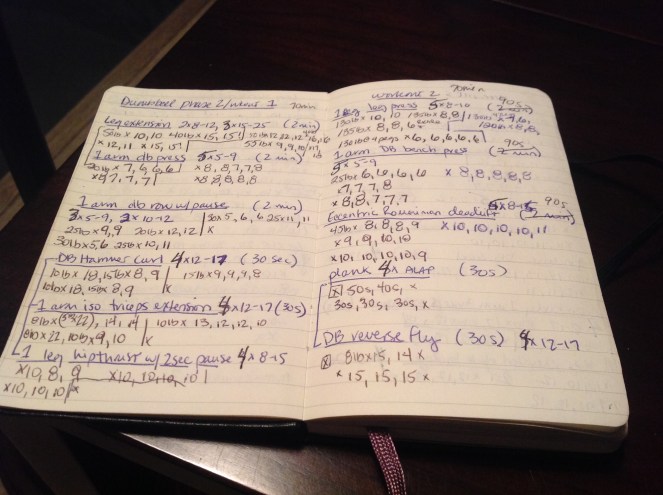 Dumbbell phase 2/week 1 70min
Leg extension 2x8-12, 3x15-25 (2min)
50lb x 10,10 40lb x 15,15!
x 12,11 x 15,15! 55lb x 9,9,10
1 arm db press 5x5-9 (2min)
x 8,8,7,7,8
x 8,7,7,7 x 8,8,8,8
1 arm db row w/pause (2min)
3x5-9, 2x10-12 30x5,6,6 25x11,11
25lb x 9,9 20lb x 12,12 x
30lb x 5,6 25lb x 10,11
DB Hammer Curl 4x12-17 (30 sec)
15lb x 9,9,9,8
10lb x 18, 15lb x 8,9
1 arm iso triceps extension 4x12-17 (30s)
14,14 10lb x 13,12,12,10
8lb x 22, 10lb x 9,10 x
1 leg hip thrust w/ 2sec pause 4x8-15
x 10,8,9 x 10,10,10,10
x 10,10,10 x
workout 2 70min
90s
1 leg leg press 5x8-10 (2min)
130lb x 10,10 135lb x 8,8
135lb x 8,8,
x 6,6,6,6
90s
1 arm DB bench press (2min)
5x5-9
25lb x 6,6,6,6 x 8,8,8,8,8
x 7,7,7,8
x 8,8,7,7,7
Eccentric Romanian deadlift 5x8-15 90s (2min)
45lb x 8,8,8,9 x 10,10,10,10,11
x 9,9,10,10
x 10,10,10,10,9
plank 4x ALAP (30s)
x 50s, 40s, x
30s, 30s, 30s, x
DB reverse fly (30s) 4x12-17
x 8lb x 15, 14 x
x 15, 15, 15 x